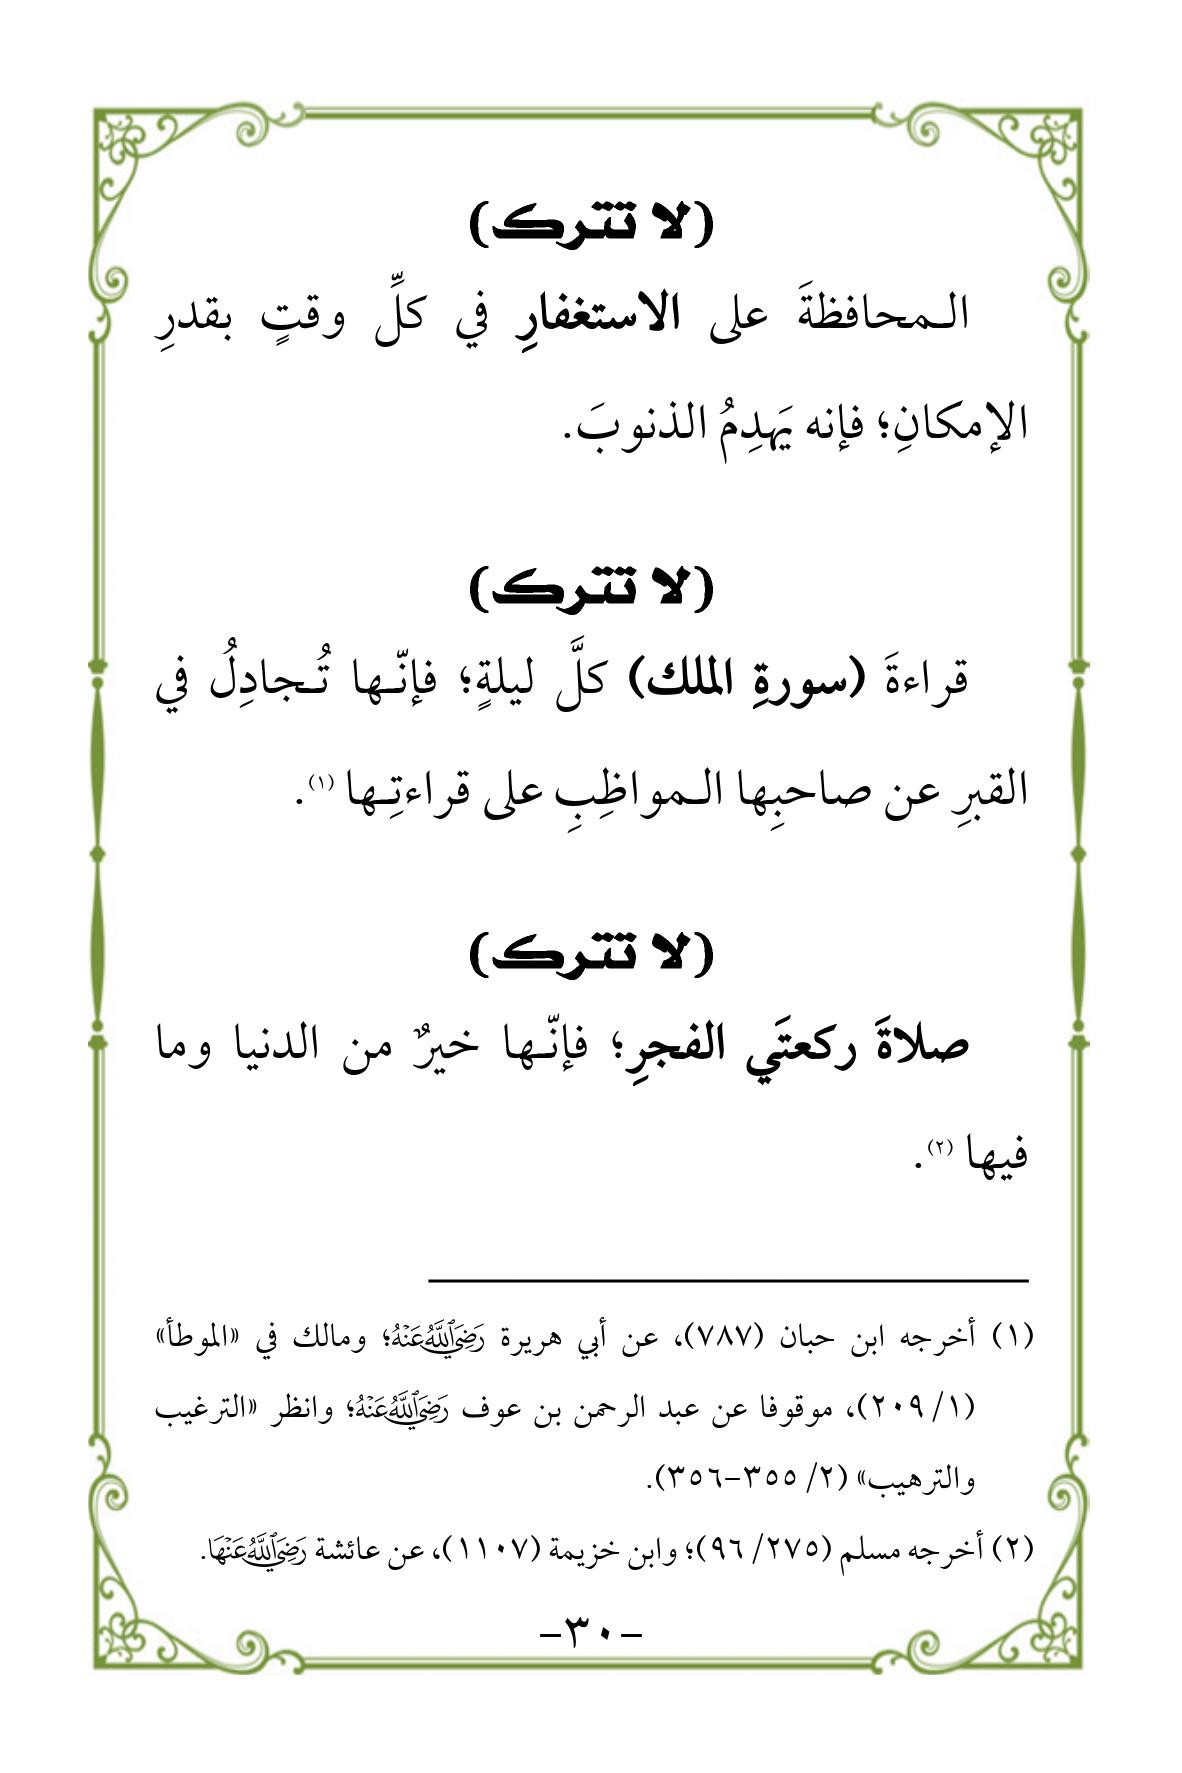 (لا تترك)
الـمحافظةَ على الاستغفارِ في كلِّ وقتٍ بقدرِ
الإمكانِ؛ فإنه يَهدِمُ الذنوبَ.
(لا تترك)
قراءةَ (سورةِ الملك) كلَّ ليلةٍ؛ فإنّـها تُـجادِلُ في
القبرِ عن صاحبِها الـمواظِبِ على قراءتِـها (١).
(لا تترك)
صلاةَ ركعتَي الفجرِ؛ فإنّـها خيرٌ من الدنيا وما
فيها (٢).
(١) أخرجه ابن حبان (٧٨٧)، عن أبي هريرة رَضِيَ اللَّهُ عَنْهُ؛ ومالك في «الموطأ»
(١/ ٢٠٩)، موقوفا عن عبد الرحمن بن عوف رَضِيَ اللَّهُ عَنْهُ؛ وانظر «الترغيب
والترهيب» (٢/ ٣٥٥-٣٥٦).
(٢) أخرجه مسلم (٢٧٥/ ٩٦)؛ وابن خزيمة (١١٠٧)، عن عائشة رَضِيَ اللَّهُ عَنْهَا.
-٣٠-